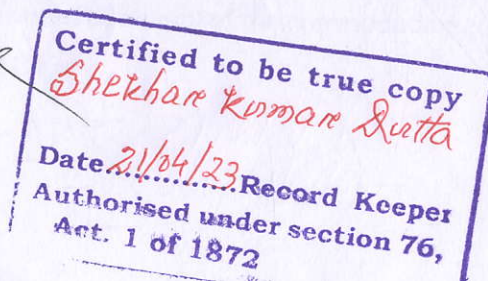 Certified to be true copy
Shekhar Kumar Dutta
Date 21/04/23 Record Keeper
Authorised under section 76,
Act. 1 of 1872